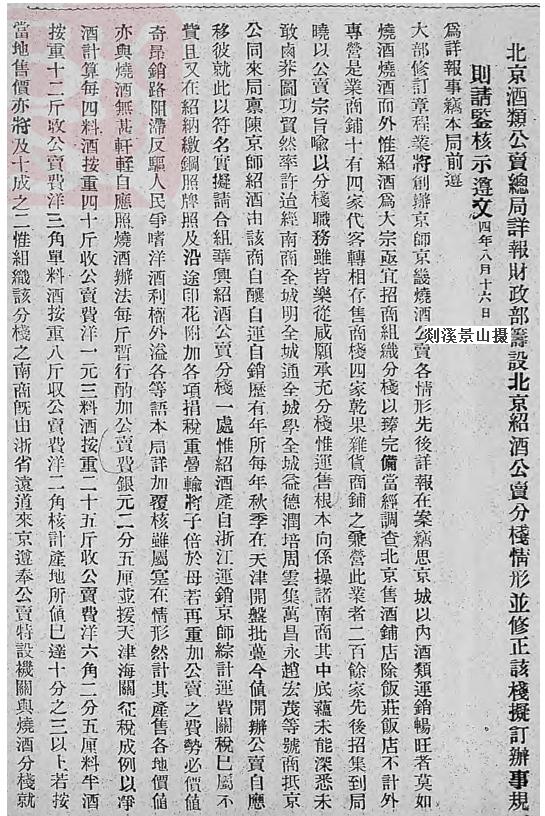 北京酒類公賣總局詳報財政部籌設北京紹酒公賣分棧情形並修正該棧擬訂辦事規
則請鑒核示遵文 四年八月十六日
為詳報事竊本局前遵
大部修訂章程業將創辦京師京畿燒酒公賣各情形先後詳報在案竊思京城以內酒類運銷暢旺者莫如
燒酒燒酒而外惟紹酒為大宗亟宜招商組織分棧以臻完備當經調查北京售酒鋪店除飯莊飯店不計外
專營是業商鋪十有四家代客轉相存售商棧四家乾果雜貨商鋪之兼營此業者二百餘家先後招集到局
曉以公賣宗旨喻以分棧職務雖皆樂從咸願承充分棧惟運售根本向係操諸南商其中底蘊未能深悉未
敢鹵莽圖功貿然率許迨經南商全城明全城通全城學全城益德潤培周雲集萬昌永趙宏茂等號商抵京
公同來局稟陳京師紹酒由該商自釀自運自銷歷有年所每年秋季在天津開盤批躉今值開辦公賣自應
移彼就此以符名實擬請合組華興紹酒公賣分棧一處惟紹酒產自浙江運銷京師綜計運費關稅已屬不
貲且又在紹納繳鋼照牌照及沿途印花附加各項捐稅重疊輸將子倍於母若再重加公賣之費勢必價值
奇昂銷路阻滯反驅人民爭嗜洋酒利權外溢各等語本局詳加覆核雖屬實在情形然計其產售各地價值
亦與燒酒無甚軒輊自應照燒酒辦法每斤暫行酌加公賣費銀元二分五厘並援天津海關征稅成例以凈
酒計算每四料酒按重四十斤收公賣費洋一元三料酒按重二十五斤收公賣費洋六角二分五厘料半酒
按重十二斤收公賣費洋三角單料酒按重八斤収公賣費洋二角核計產地所值已達十分之三以上若按
當地售價亦將及十成之二惟組織該分棧之南商既由浙省遠道來京遵奉公賣特設機關與燒酒分棧就
剡溪景山摄